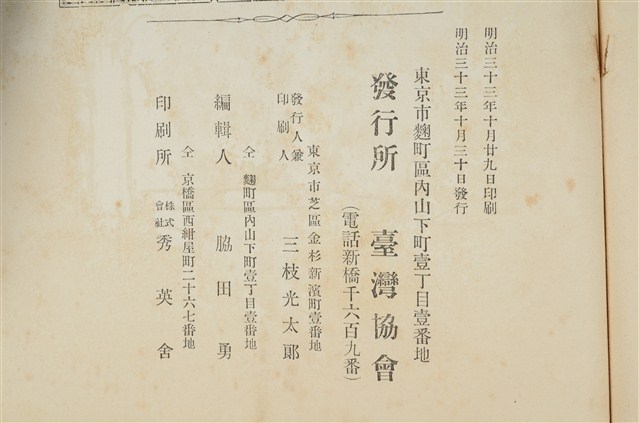 明治三十三年十月廿九日印刷
明治三十三年十月三十日發行
東京市麴町區內山下町壹丁目壹番地
發行所 臺灣協會
(電話新橋千六百九番)
東京市芝區金杉新濱町壹番地
發行人兼印刷人 三枝光太郎
仝 麴町區內山下町壹丁目壹番地
編輯人 脇田勇
仝 京橋區西紺屋町二十六七番地
印刷所 株式會社 秀英舍